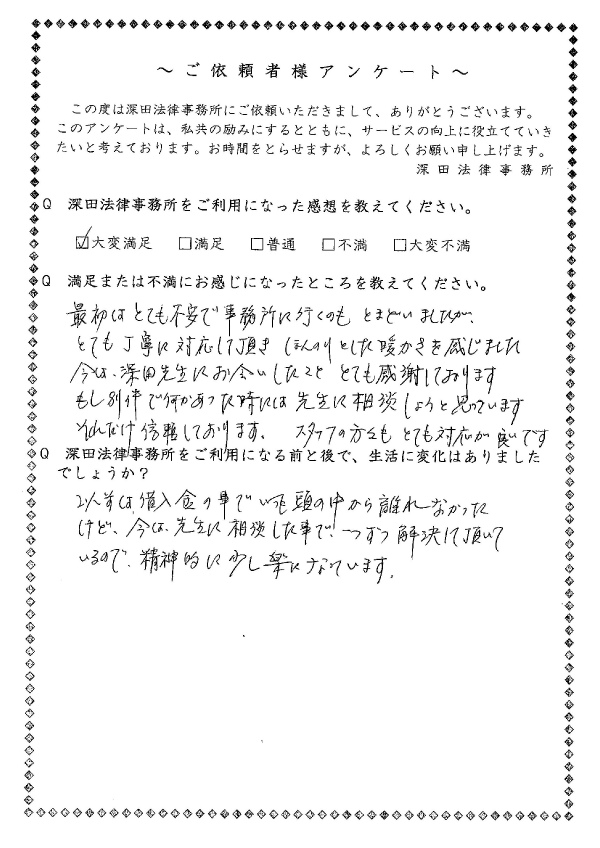 ～ご依頼者様アンケート～
この度は深田法律事務所にご依頼いただきまして、ありがとうございます。
このアンケートは、私共の励みにするとともに、サービスの向上に役立てていき
たいと考えております。お時間をとらせますが、よろしくお願い申し上げます。
深田法律事務所
Q 深田法律事務所をご利用になった感想を教えてください。
☑大変満足 □満足 □普通 □不満 □大変不満
Q 満足または不満にお感じになったところを教えてください。
最初はとても不安で事務所に行くのも とまどいましたが、
とても丁寧に対応して頂き ほんのりとした暖かさを感じました
今は、深田先生にお会いしたこと とても感謝しております
もし別件で何かあった時には先生に相談しようと思っています
それだけ信頼しております。 スタッフの方々も とても対応が良いです
Q 深田法律事務所をご利用になる前と後で、生活に変化はありました
でしょうか？
以前は、借入金の事でいつも頭の中から離れなかった
けど、今は、先生に相談した事で、一つずつ解決して頂いて
いるので、精神的に少し楽になっています。